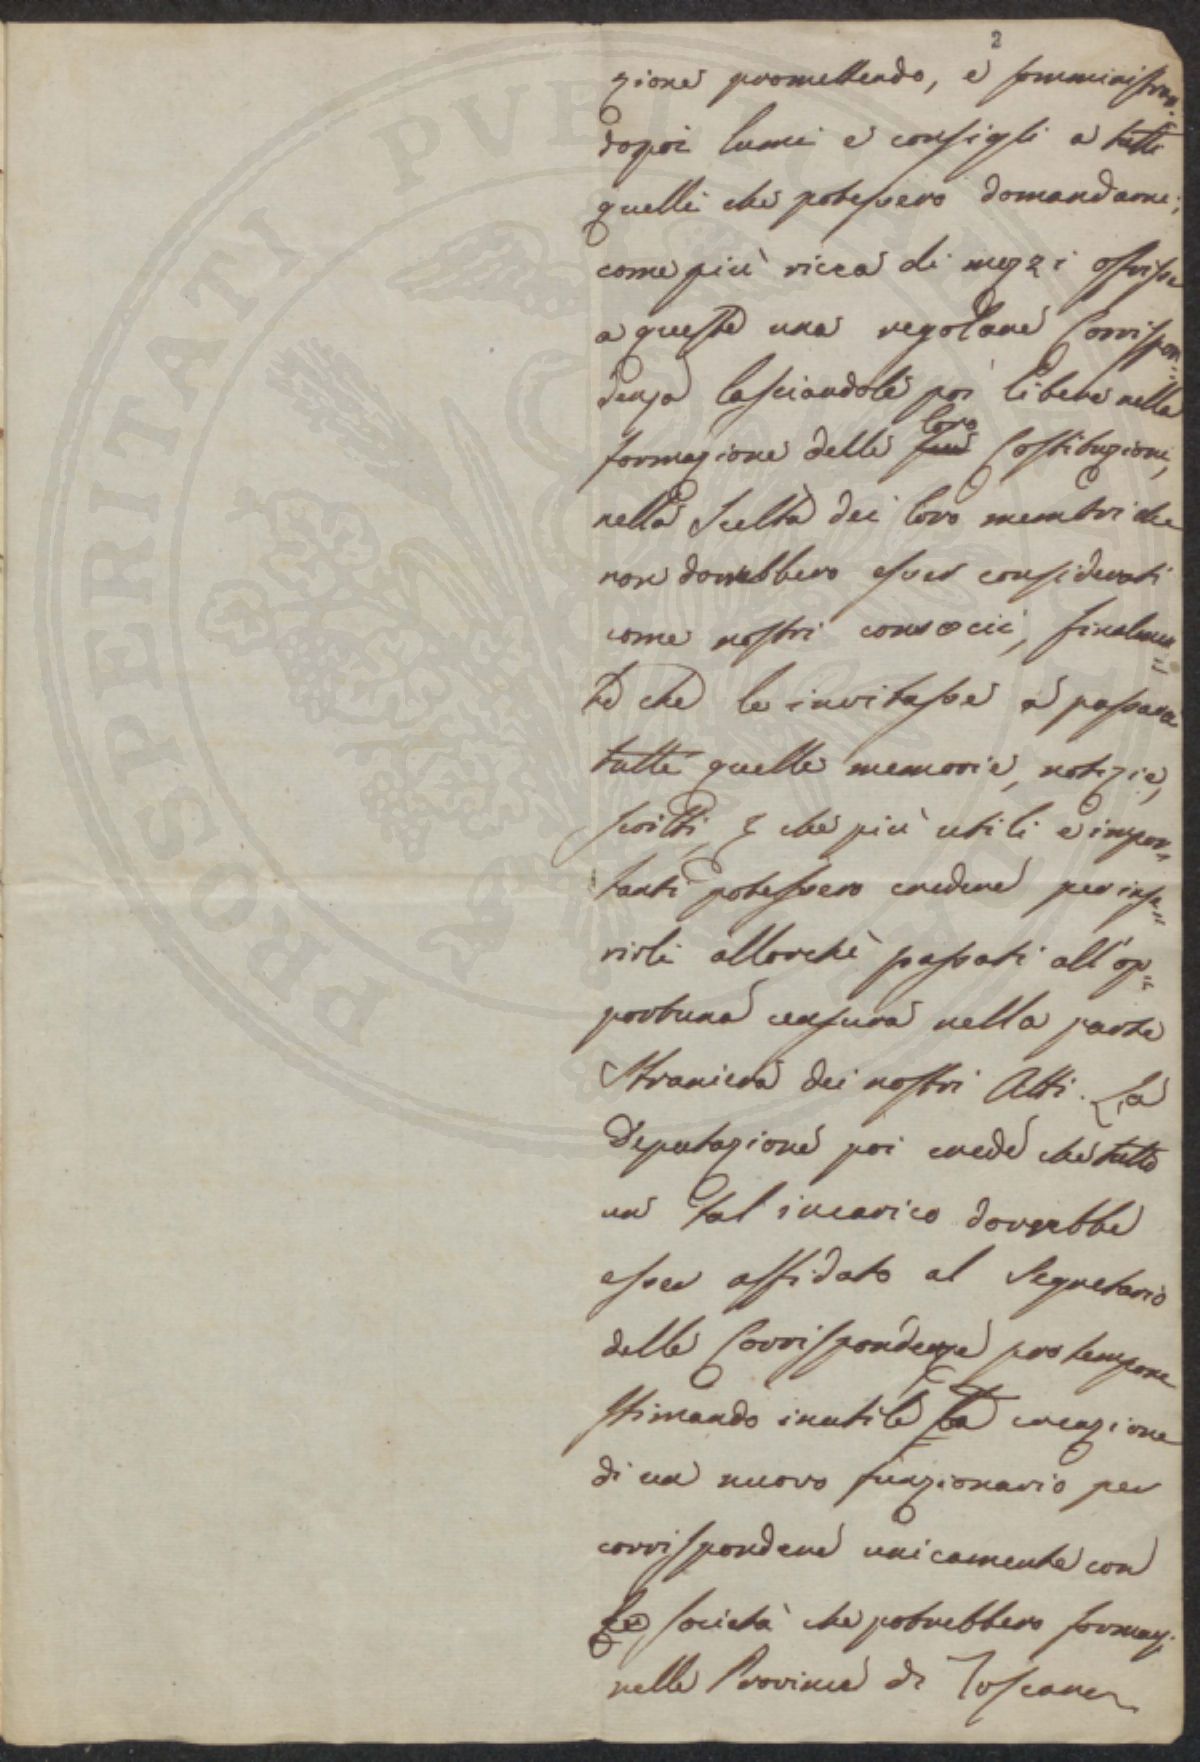 2
zione promettendo, e somministran=
dopoi lumi e consigli a tutte
quelle che potessero domandarne;
come più ricca di mezzi offrisse
a queste una regolare Corrispon=
denza lasciandole poi libere nella
formazione delle sue loro Costituzioni,
nella Scelta dei loro membri che
non dovrebbero esser considerati
come nostri consocii, finalmen=
te che le invitasse a passare
tutte quelle memorie, notizie,
scritti, & che più utili e impor=
tanti potessero credere per inse=
rirli allorchè passati all'op=
portuna censura nella parte
Straniera dei nostri Atti. La
Deputazione poi crede che tutto
un tal incarico dovrebbe
esser affidato al Segretario
delle Corrispondenze pro tempore
stimando inutile la creazione
di un nuovo funzionario per
corrispondere unicamente con
le società che potrebbero formarsi
nelle Provincie di Toscana
PROSPERITATI PUBLICAE